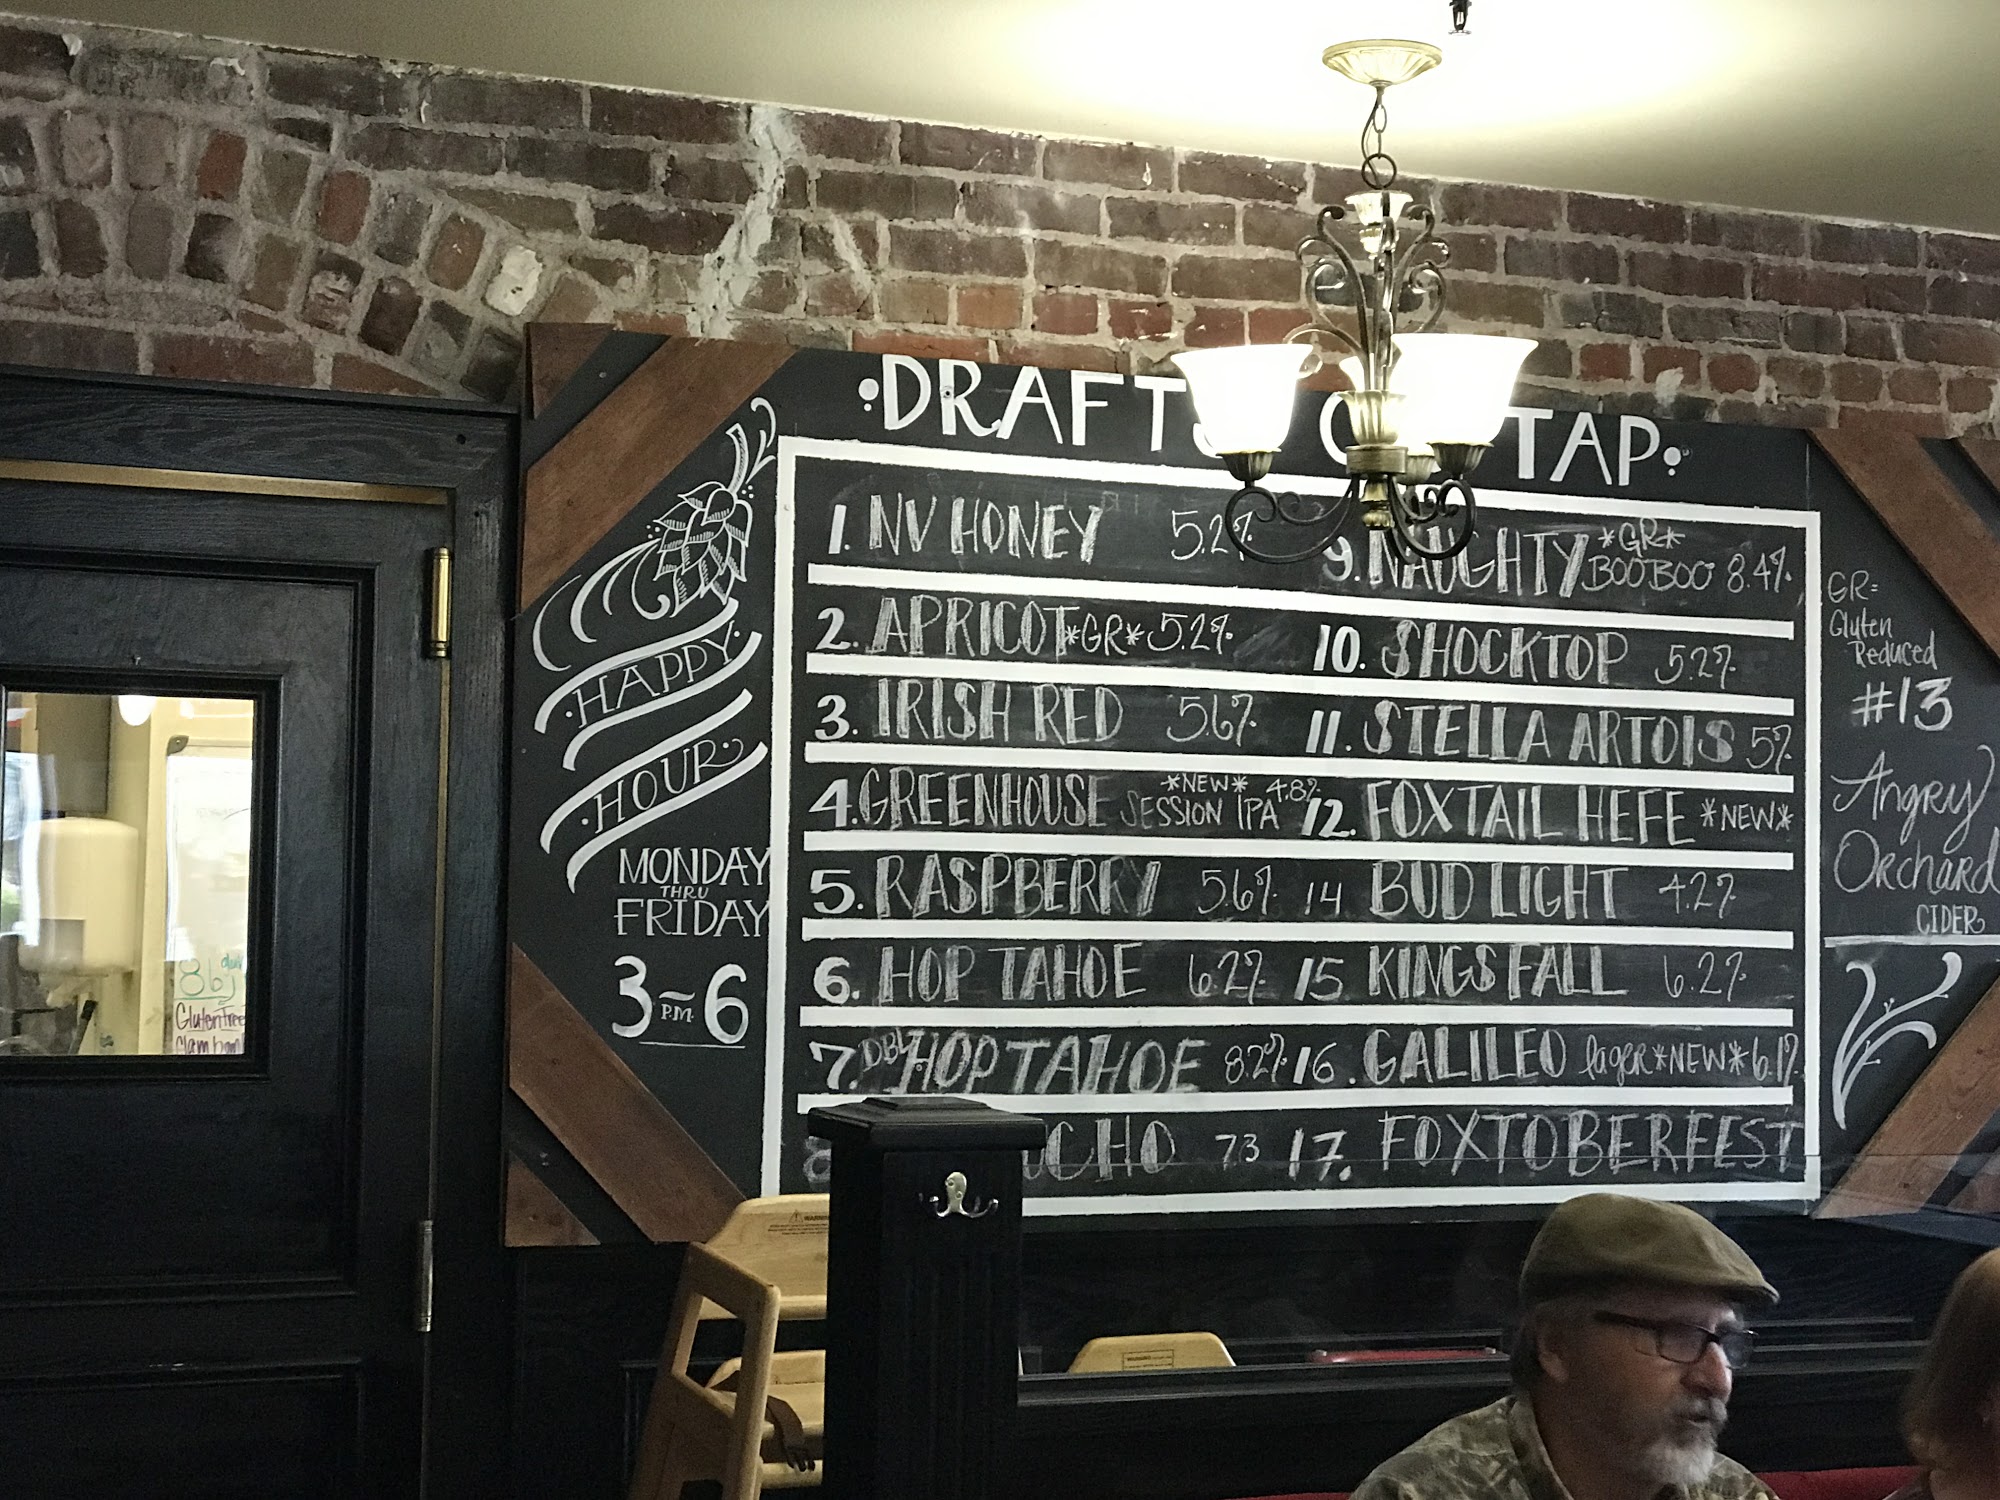 DRAFT TAP
HAPPY
HOUR
MONDAY
THRU
FRIDAY
3~6
P.M.
1. NV HONEY 5.2%
2. APRICOT *GR* 5.2%
3. IRISH RED 5.6%
4. GREENHOUSE SESSION IPA *NEW* 4.8%
5. RASPBERRY 5.6%
6. HOP TAHOE 6.2%
7. DBL HOP TAHOE 8.2%
73
9. NAUGHTY BOOBOO *GR* 8.4%
10. SHOCKTOP 5.2%
11. STELLA ARTOIS 5%
12. FOXTAIL HEFE *NEW*
14 BUD LIGHT 4.2%
15 KINGS FALL 6.2%
16. GALILEO lager *NEW* 6.1%
17. FOXTOBERFEST
GR=
Gluten
Reduced
#13
Angry
Orchard
CIDER
86
WARNING